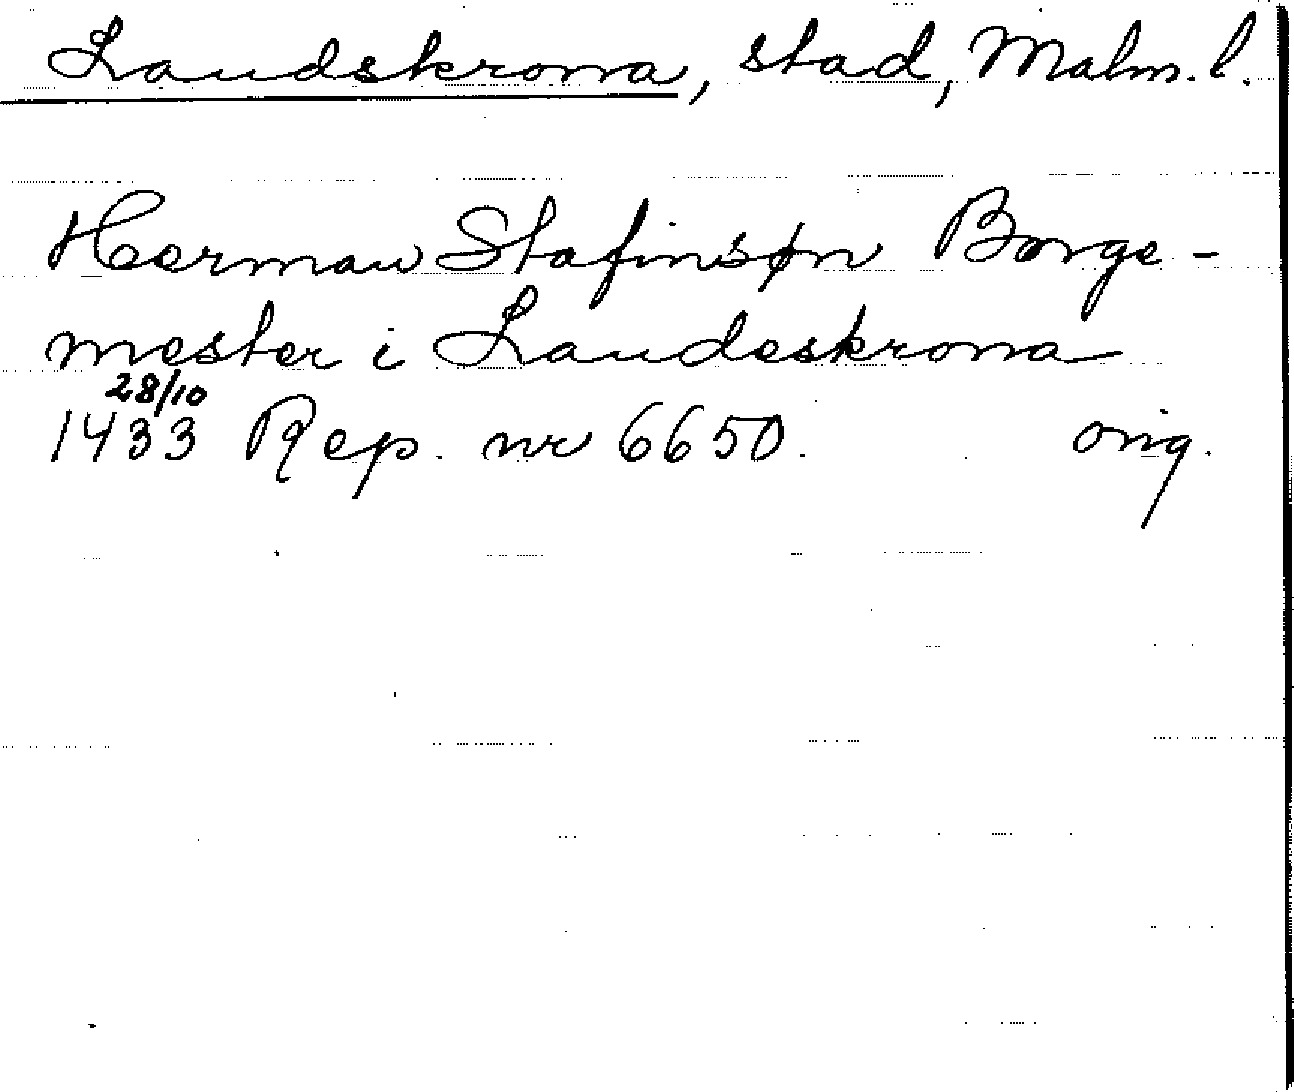 Landskrona, stad, Malm. l.
Herman Stafinsøn Borge-
mester i Landeskrona
28/10
1433 Rep. nr 6650. orig.